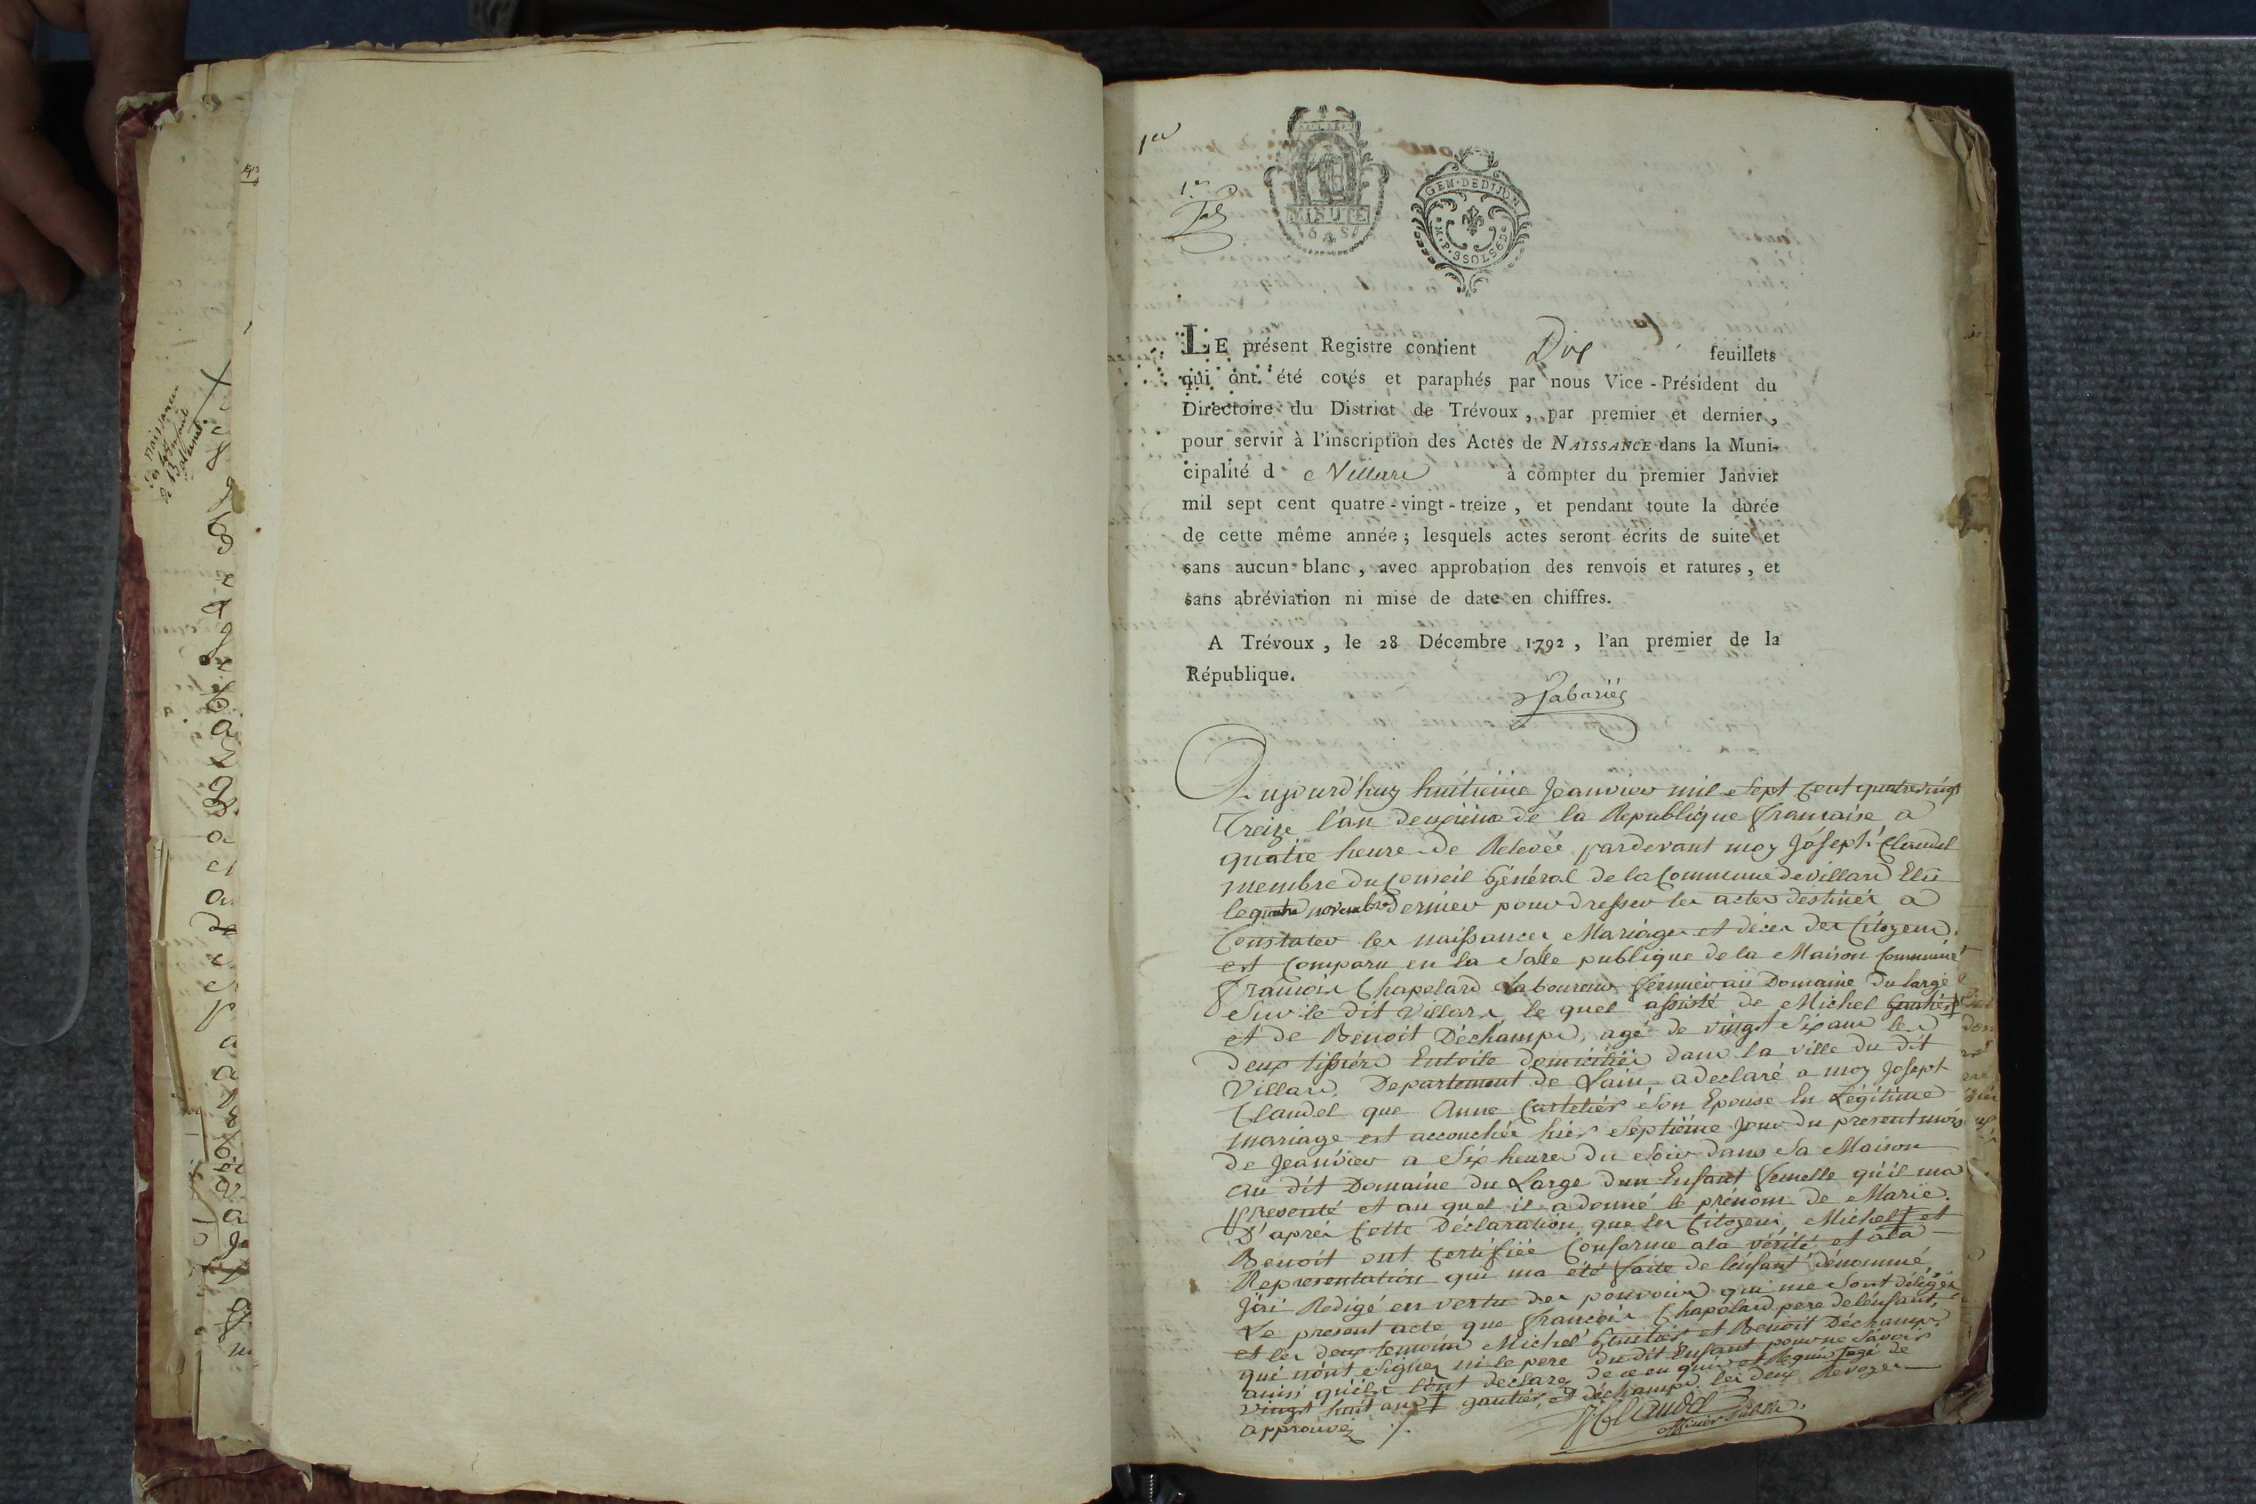 1er
1er
MINUTE
6 S
GEN · DE DIJON
LE présent Registre contient Dix feuillets
qui ont été cotés et paraphés par nous Vice-Président du
Directoire du District de Trévoux, par premier et dernier,
pour servir à l'inscription des Actes de NAISSANCE dans la Muni-
cipalité d e Villars à compter du premier Janvier
mil sept cent quatre-vingt-treize, et pendant toute la durée
de cette même année; lesquels actes seront écrits de suite et
sans aucun blanc, avec approbation des renvois et ratures, et
sans abréviation ni mise de date en chiffres.
A Trévoux, le 28 Décembre 1792, l'an premier de la
République.
Sabariés
Aujourd'huy huitieme Jeanvier mil Sept Cent quatrevingt
Treize l'an deuxieme de la Republique francaise a
quatre heure de Relevée pardevant moy Joseph Claudel
membre du Conseil Général de la Commune de villard Elü
le quatre novembre dernier pour dresser les actes destinés a
Constater les naissances Mariages et décès des Citoyens
est Comparu en la Salle publique de la Maison Commune
francois Chapolard Laboureur fermier au Domaine du large
Sur le dit Villars, le quel assisté de Michel Gautier
et de Benoit Déchamps, agé de vingt Six ans les
deux tissiers Entoile domiciliés dans la ville du dit
Villard, Departement de Lain, a declaré a moy Josept
Claudel que Anne Cartelier Son Epouse En Légitime
mariage est accouchée hier Septieme Jour du present mois
de Jeanvier a Six heure du Soir dans Sa Maison
au dit Domaine du Large dun Enfant femelle qu'il ma
presenté et au quel il a donné le prénom de Marie.
D'après Cette Déclaration que les Citoyens Michel † et
Benoit ont Certifiée Conforme a la vérité et a la
Representation qui ma été faite de lénfant dénommé
Jái Redigé en vertu des pouvoirs qui me Sont délégés
Le present acte que francois Chapolard pere de lénfant,
et les deux temoins Michel Gautier et Benoit Déchamps
qui nónt Signer ni le pere du dit Enfant pour ne Savoir
ainsi qu'ils lónt declare de ce en quis et Requis Jagé de
vingt huit ans † gautier, et déchamps les deux Revoyer
approuvés /.
J Claudel
officier Public